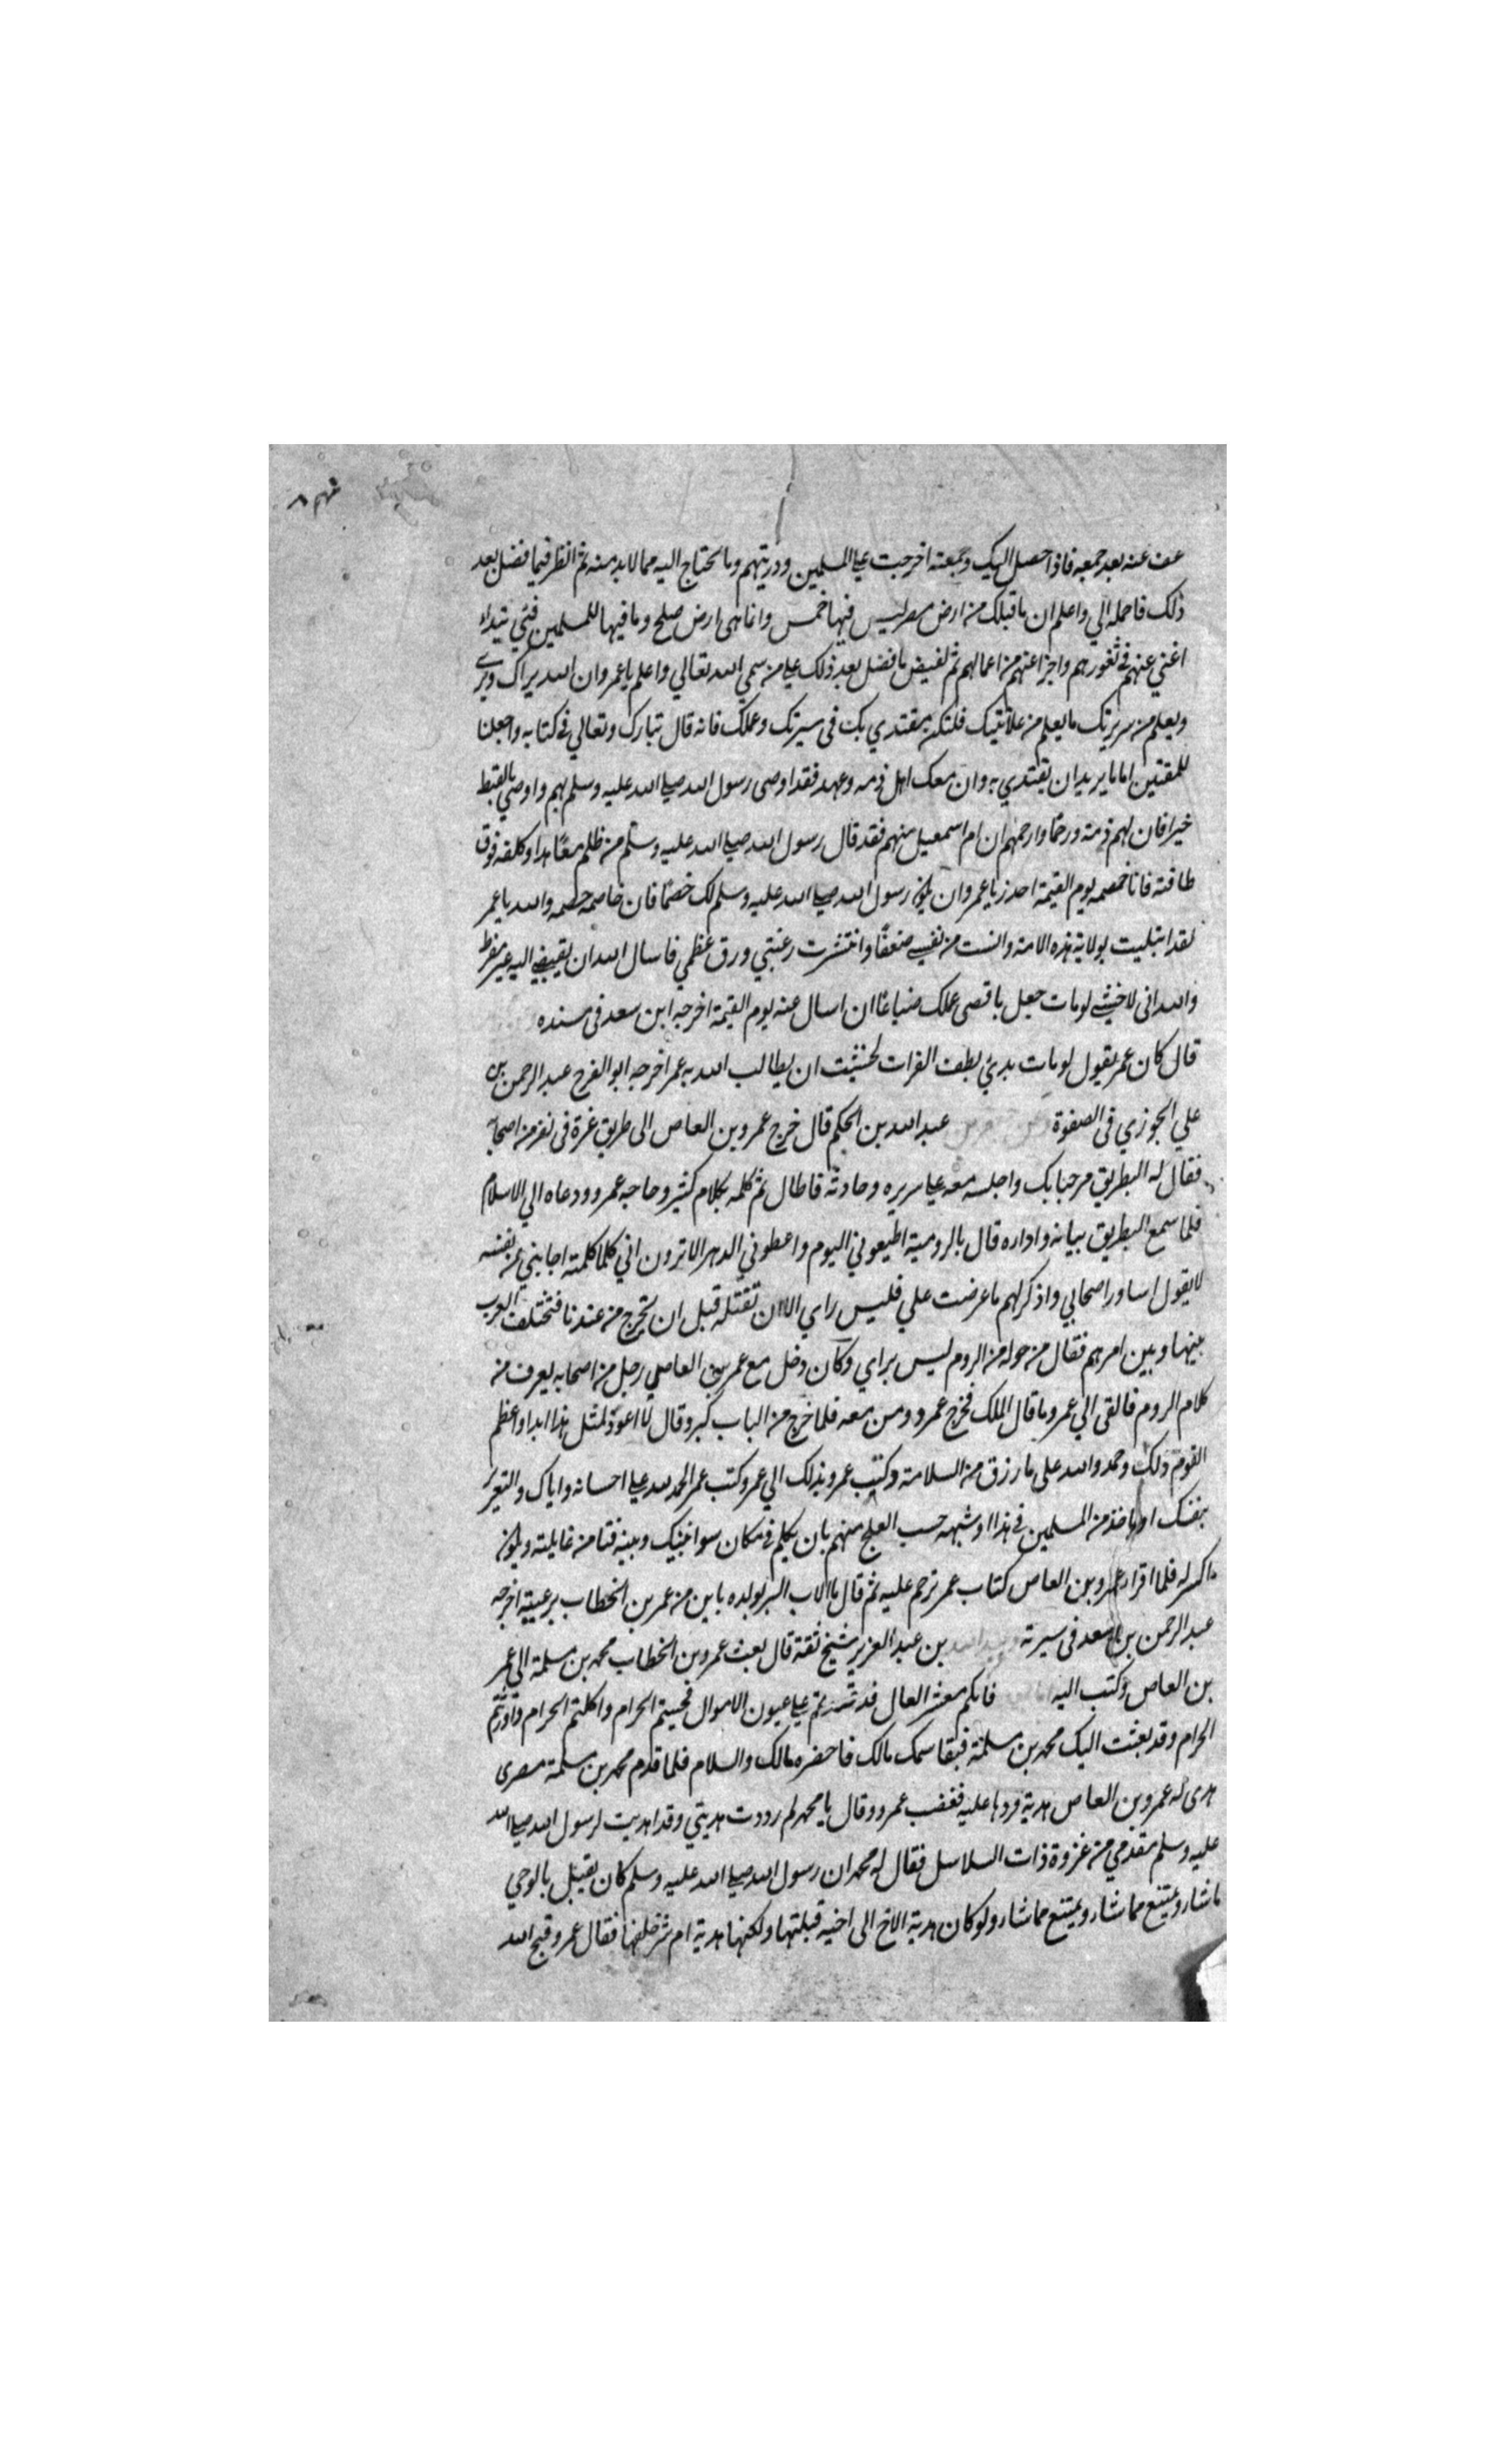 عف عنه بعد جمعه فاذا حصل اليك وجمعته اخرجت عطا المسلمين وذريتهم وما يحتاج اليه مما لابد منه ثم انظر فيما فضل بعد
ذلك فاحمله الي واعلم ان ما قبلك من ارض مصر ليس فيها خمس وانما هي ارض صلح وما فيها للمسلمين فئ تبداء
اغني عنهم في ثغورهم واجزا عنهم من اعمالهم ثم تفيض ما فضل بعد ذلك علي من سمي الله تعالي واعلم يا عمرو ان الله يراك ويري
ويعلم من سريرتك ما يعلم من علانيتك فلتكن مقتدي بك في سيرتك وعملك فانه قال تبارك وتعالي في كتابه واجعلنا
للمتقين اماما يريد ان يقتدي به وان معك اهل ذمه وعهد فقد اوصى رسول الله صلي الله عليه وسلم بهم واوصي بالقبط
خيرا فان لهم ذمة ورحما وارحمهم ان ام اسمعيل منهم فقد قال رسول الله صلي الله عليه وسلم من ظلم معاهدا او كلفه فوق
طاقته فانا خصمه يوم القيمة احذر يا عمرو ان يكون رسول الله صلي الله عليه وسلم لك خصما فان خاصمه خصمه والله يا عمر
لقد ابتليت بولاية هذه الامة وانست من نفسي ضعفا وانتشرت رغيتي ورق عظمي فاسال الله ان يقبضني اليه غير مفرط
والله اني لاخشي لو مات جمل باقصى عملك ضياعا ان اسال عنه يوم القيمة اخرجه ابن سعد في مسنده
قال كان عمر يقول لو مات بطف الفرات لخشيت ان يطالب الله به عمر اخرجه ابو الفرج عبد الرحمن بن
علي الجوزي في الصفوة عبد الله بن الحكم قال خرج عمرو بن العاص الى طريق غزة في نفر من اصحابه
فقال له البطريق مرحبا بك واجلسه معه علي سريره وحادثه فاطال ثم كلمه بكلام كثير وحاجه عمرو ودعاه الي الاسلام
فلما سمع البطريق بيانه واداره قال بالرومية اطيعوني اليوم واعطوني الدهر الا ترون اني كلما كلمته اجابني عن نفسه
لا يقول اساور اصحابي واذكر لهم ما عرضت علي فليس راي الا ان تقتله قبل ان تخرج من عندنا فتختلف العرب
بينها وبين امرهم فقال من حوله من الروم ليس براي وكان دخل مع عمرو بن العاصي رجل من اصحابه يعرف من
كلام الروم فالقى الي عمرو ما قال الملك فخرج عمرو ومن معه فلما خرج من الباب كبر وقال لا اعود لمثل هذا ابدا واعظم
القوم ذلك وحمدوا الله على ما رزق من السلامة وكتب عمرو بذلك الي عمر وكتب عمر الحمد لله علي احسانه واياك والتغرير
بنفسك او باحد من المسلمين في هذا او شبهه حسب العلج منهم بان يكلم في مكان سوا بينك وبينه فتامن غايلته ويكون
اكسر له فلما اقرا عمرو بن العاص كتاب عمر ترحم عليه ثم قال ما الاب البر بولده بابر من عمر بن الخطاب برعيته اخرجه
عبد الرحمن بن سعد في سيرته بن عبد العزيز شيخ ثقة قال بعث عمرو بن الخطاب محمد بن مسلمة الى عمر
بن العاص وكتب اليه فانكم معشر العمال قد علي عيون الاموال فجبيتم الحرام واكلتم الحرام واورثتم
الحرام وقد بعثت اليك محمد بن مسلمة فيقاسمك مالك فاحضره مالك والسلام فلما قدم محمد بن مسلمة مصرى
هدى له عمرو بن العاص هدية فردها عليه فغضب عمرو وقال يا محمد لم رددت هديتي وقد اهديت لرسول الله صلي الله
عليه وسلم مقدمي من غزوة ذات السلاسل فقال له محمد ان رسول الله صلي الله عليه وسلم كان يقبل بالوحي
ما شار ويمتنع مما شار ويمتنع مما شار ولو كان هدية الاخ الى اخيه قبلتها ولكنها هدية ام شر خلفها فقال عمرو قبح الله